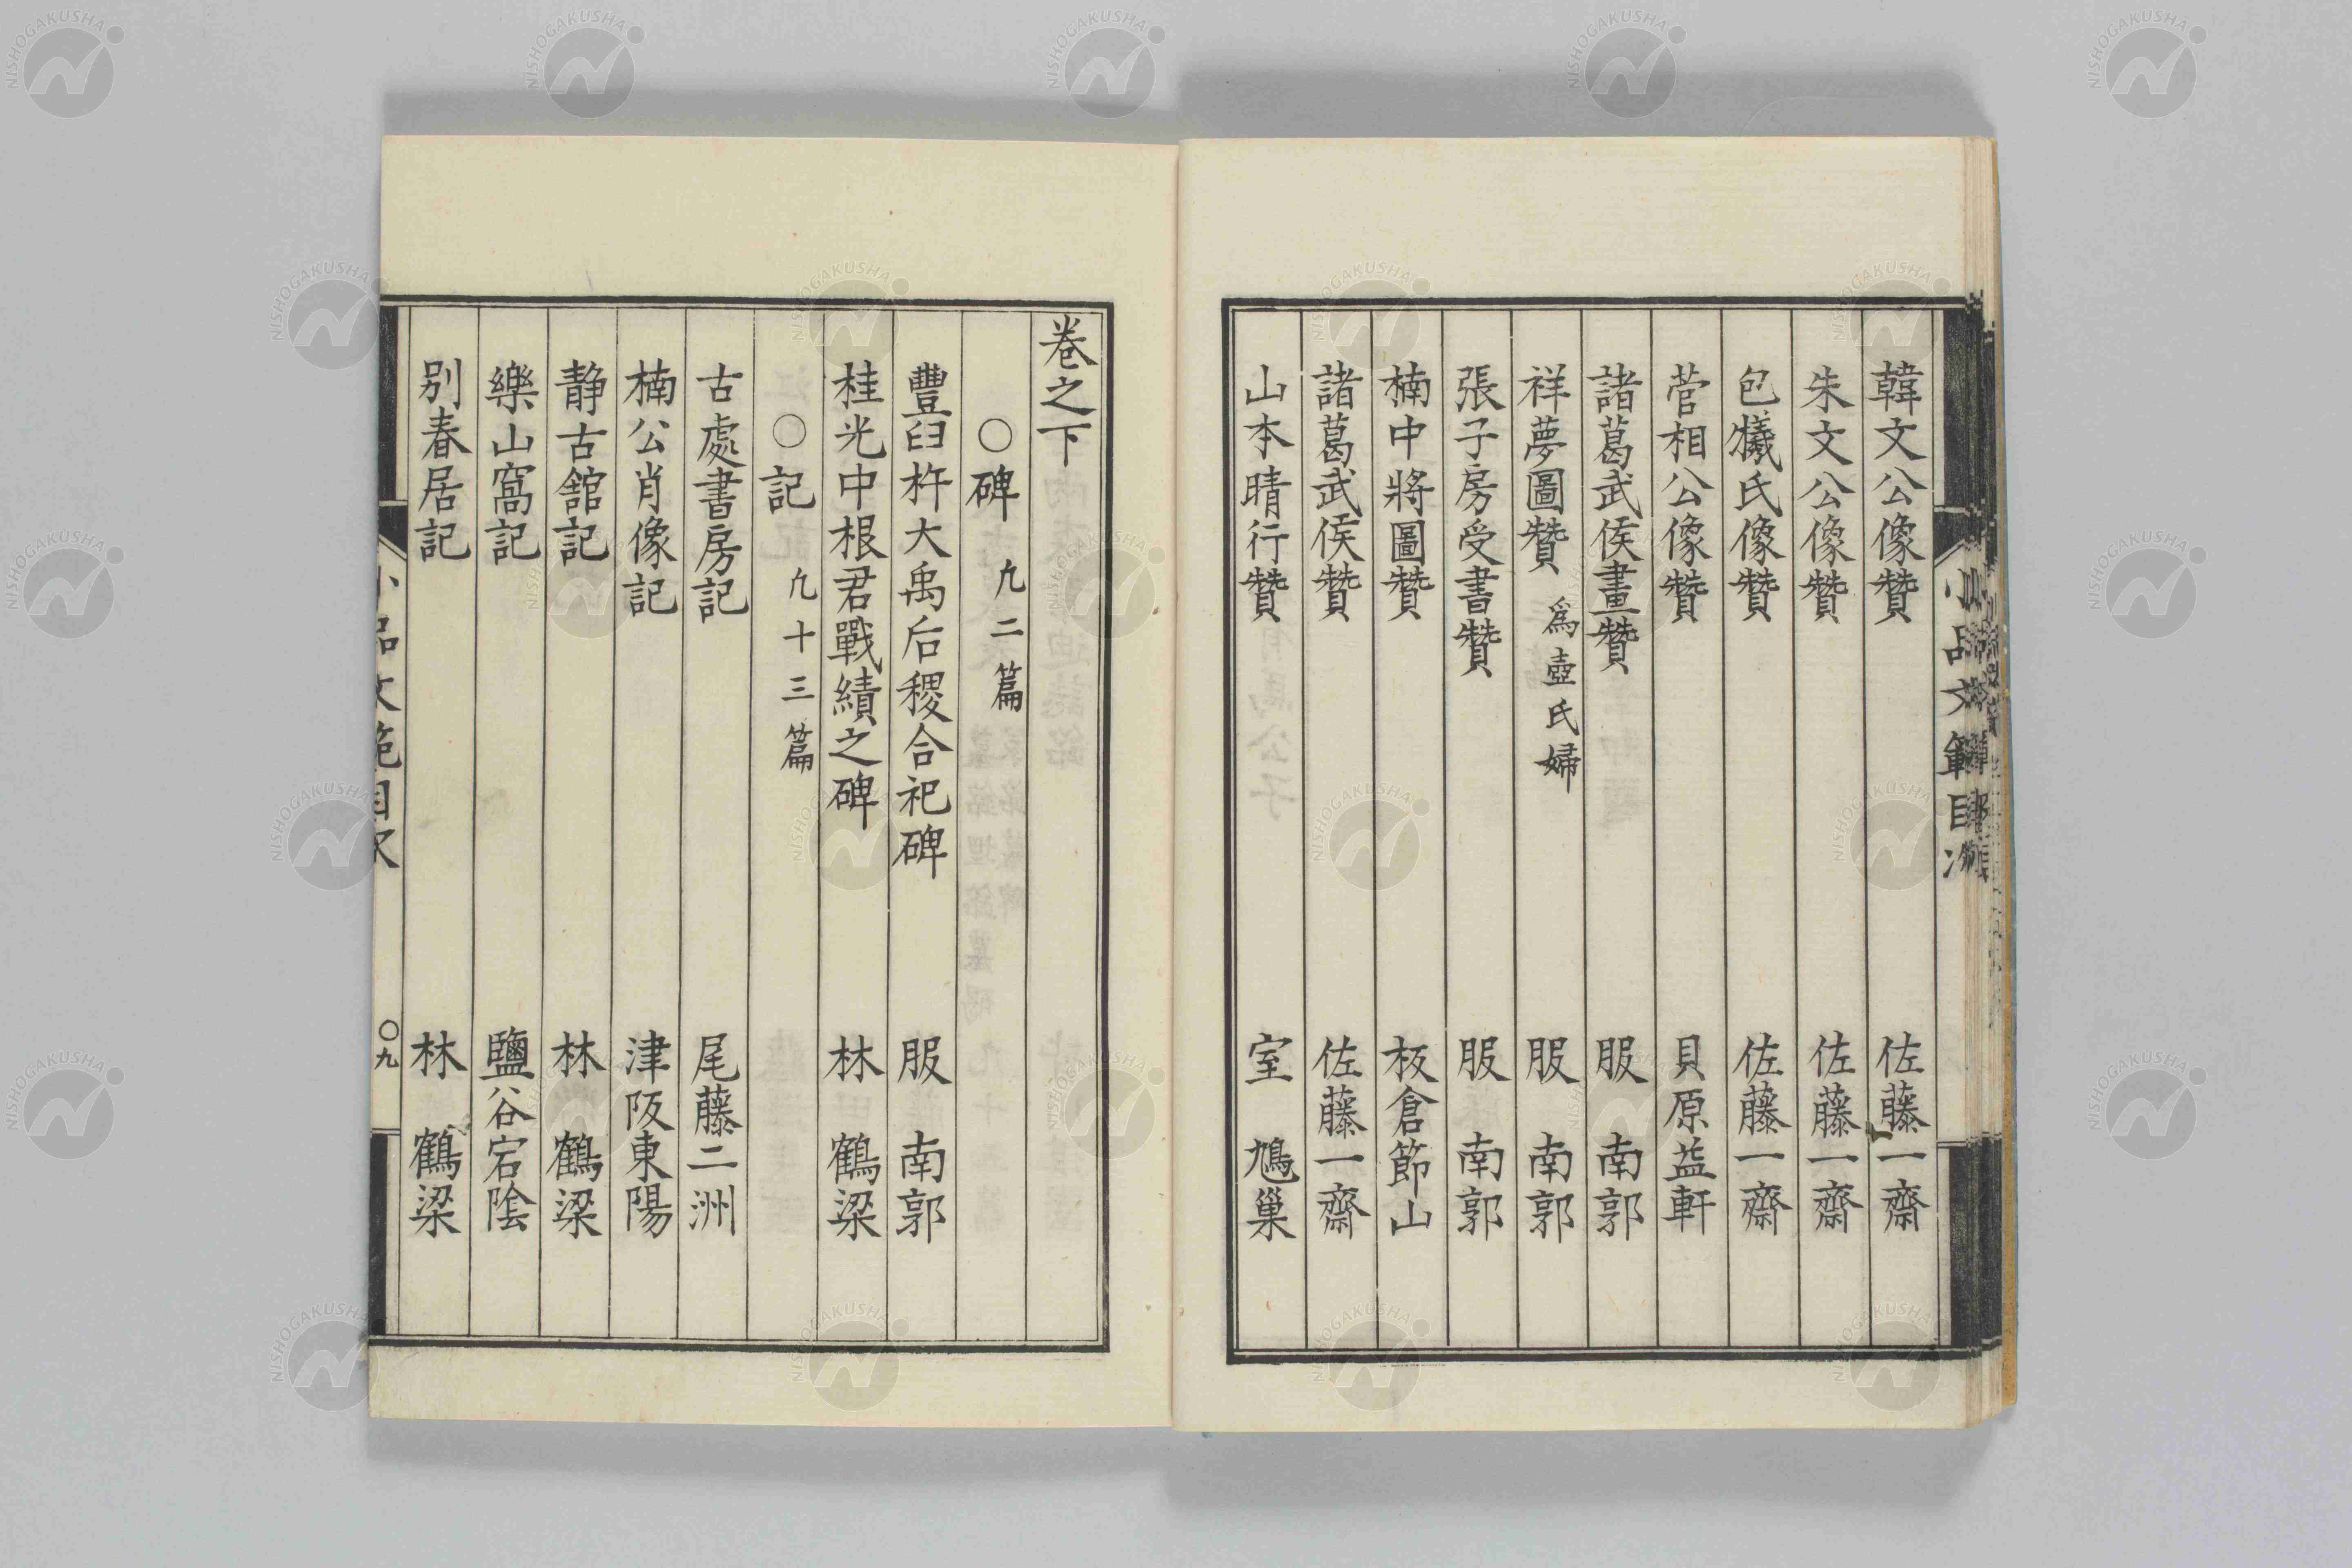 韓文公像贊 佐藤一齋
朱文公像贊 佐藤一齋
包犧氏像贊 佐藤一齋
菅相公像贊 貝原益軒
諸葛武侯畫贊 服 南郭
祥夢圖贊 爲壺氏婦 服 南郭
張子房受書贊 服 南郭
楠中將圖贊 板倉節山
諸葛武侯贊 佐藤一齋
山本晴行贊 室 鳩巢
卷之下
〇碑 凢二篇
豐臼杵大禹后稷合祀碑 服 南郭
桂光中根君戰績之碑 林 鶴梁
〇記 凢十三篇
古處書房記 尾藤二洲
楠公肖像記 津阪東陽
静古舘記 林 鶴梁
樂山窩記 鹽谷宕陰
別春居記 林 鶴梁
小品文範目次 〇九
NISHOGAKUSHA